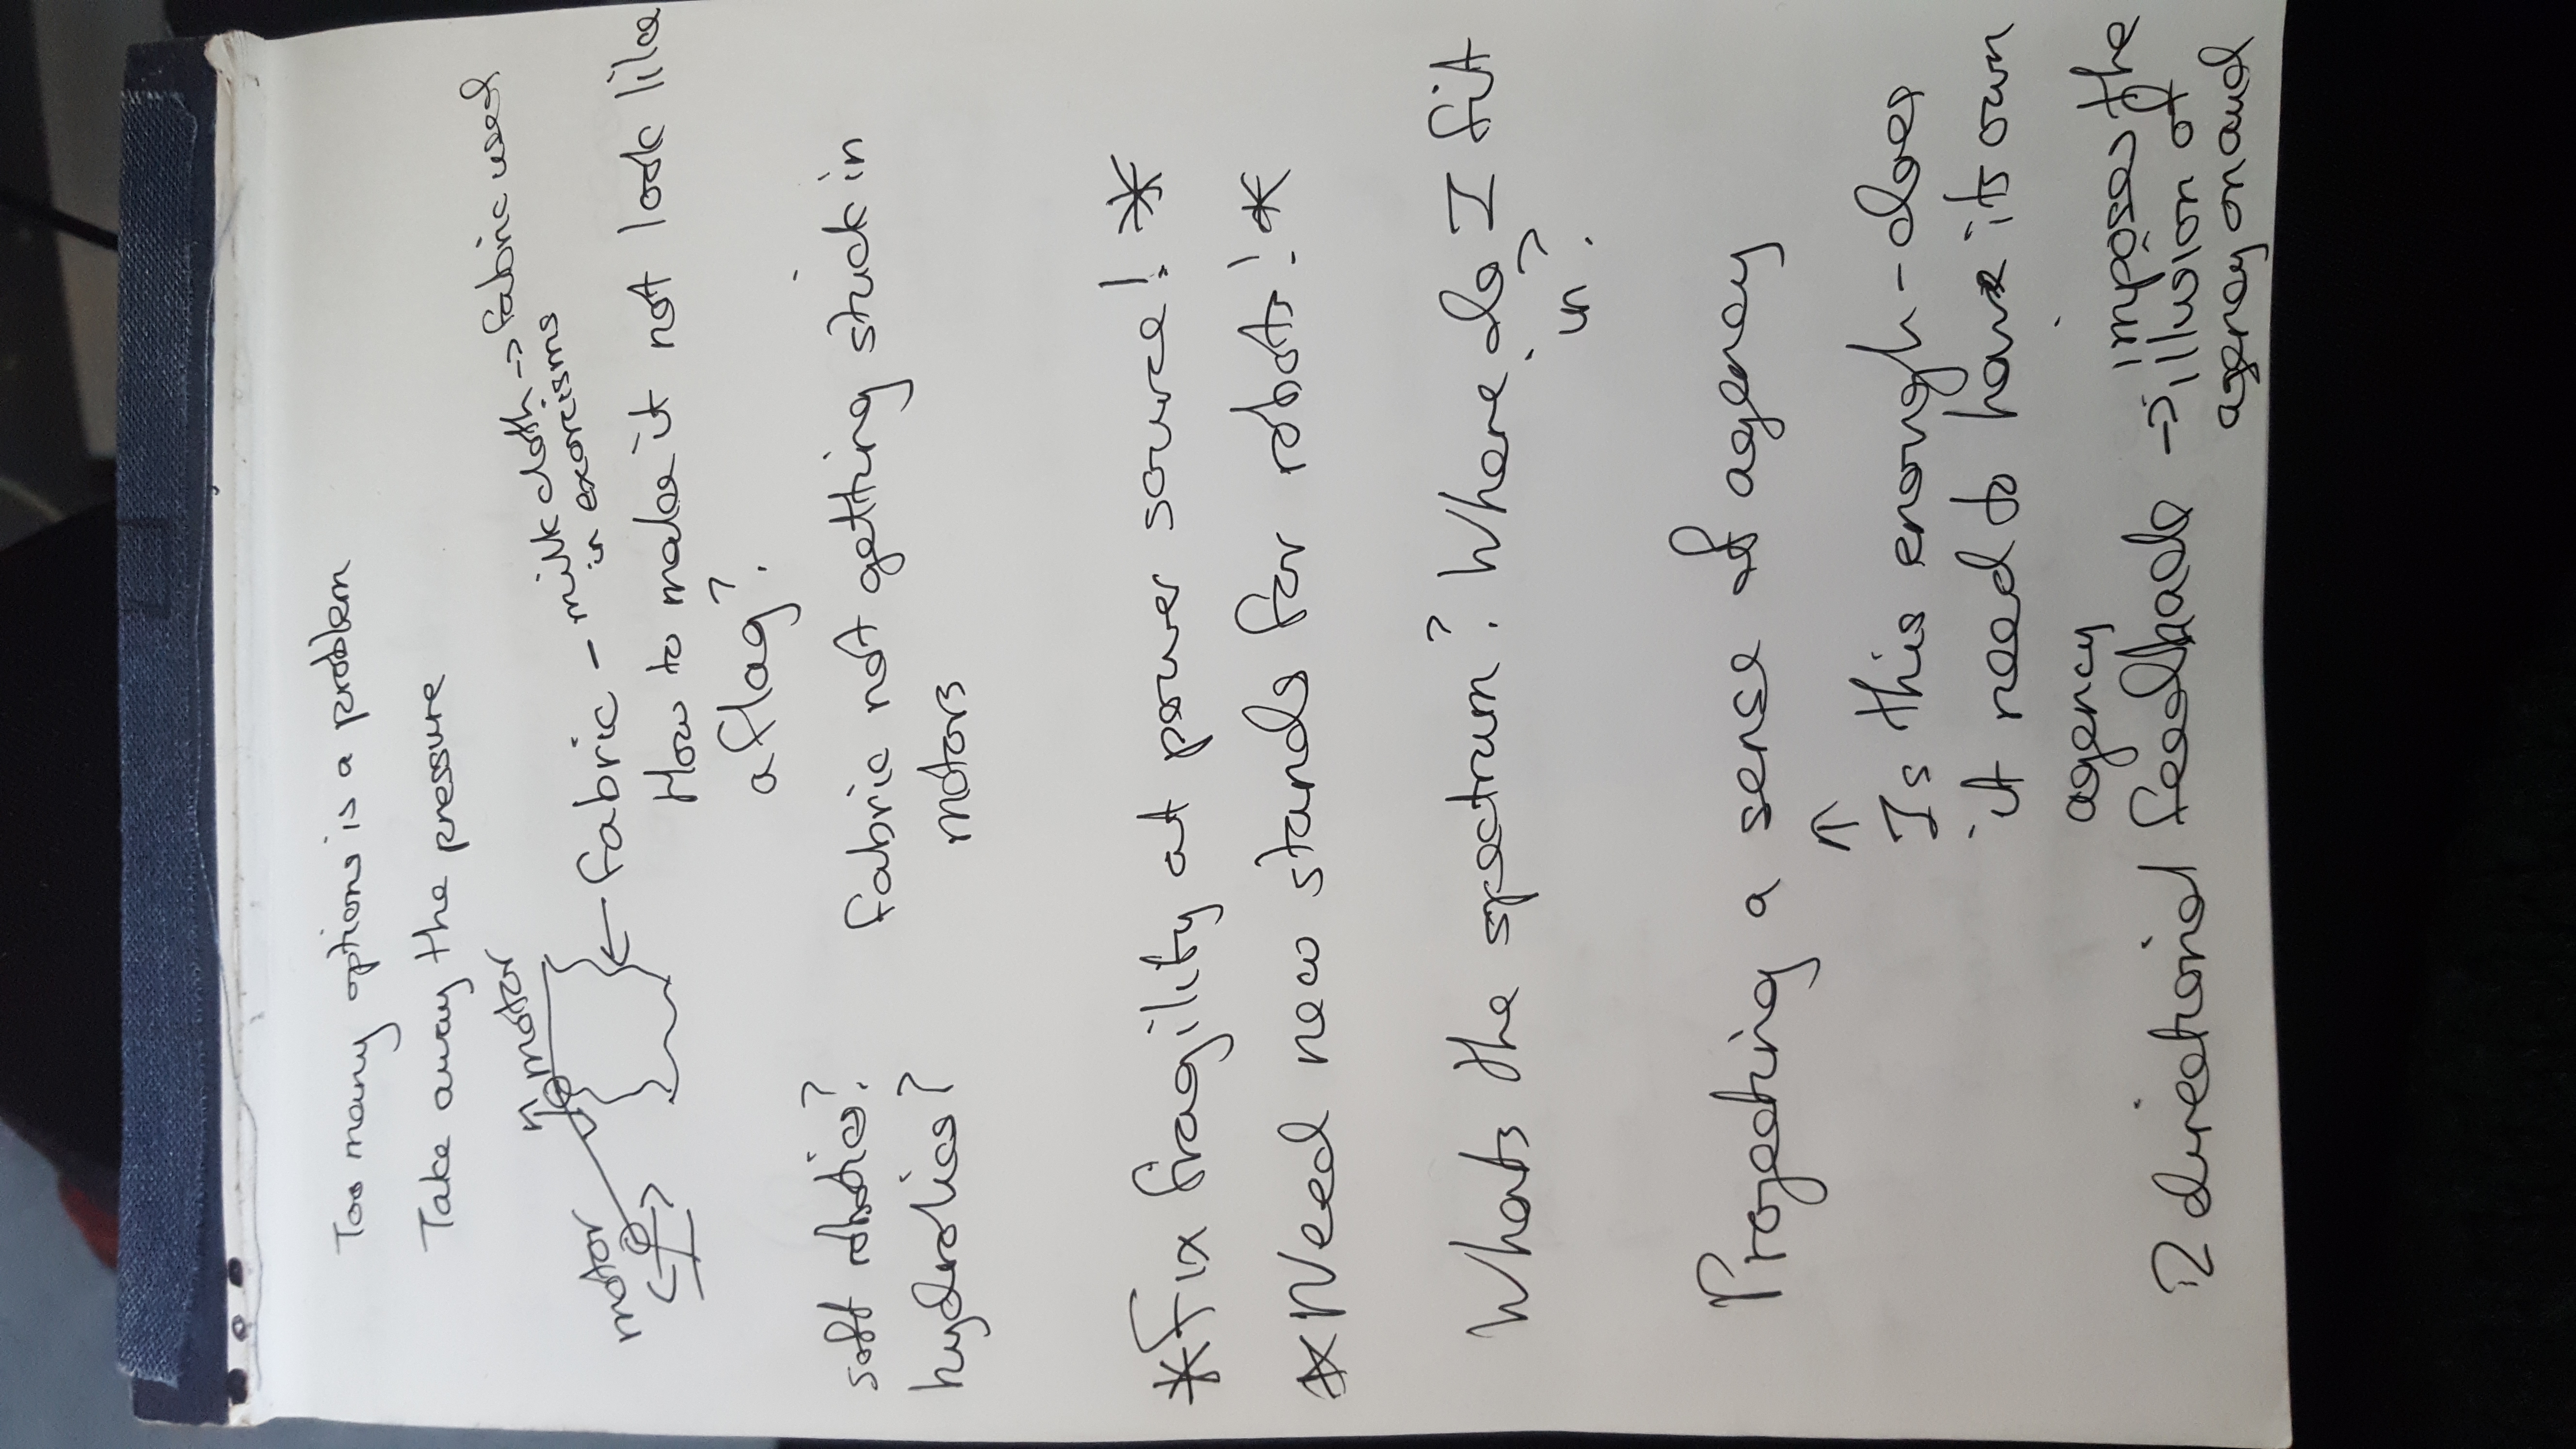 Too many options is a problem
Take away the pressure
motor
motor
fabric - milk cloth -> fabric used
in exorcisms
How to make it not look like
a flag?
soft robotics?
hydrolics?
fabric not getting stuck in
motors
*Fix fragility at power source! *
*Need new stands for robots! *
Whats the spectrum? Where do I fit
in?
Projecting a sense of agency
↑
Is this enough - does
it need to have its own
agency
2 directional feedback -> imposes the
illusion of
agency on aud